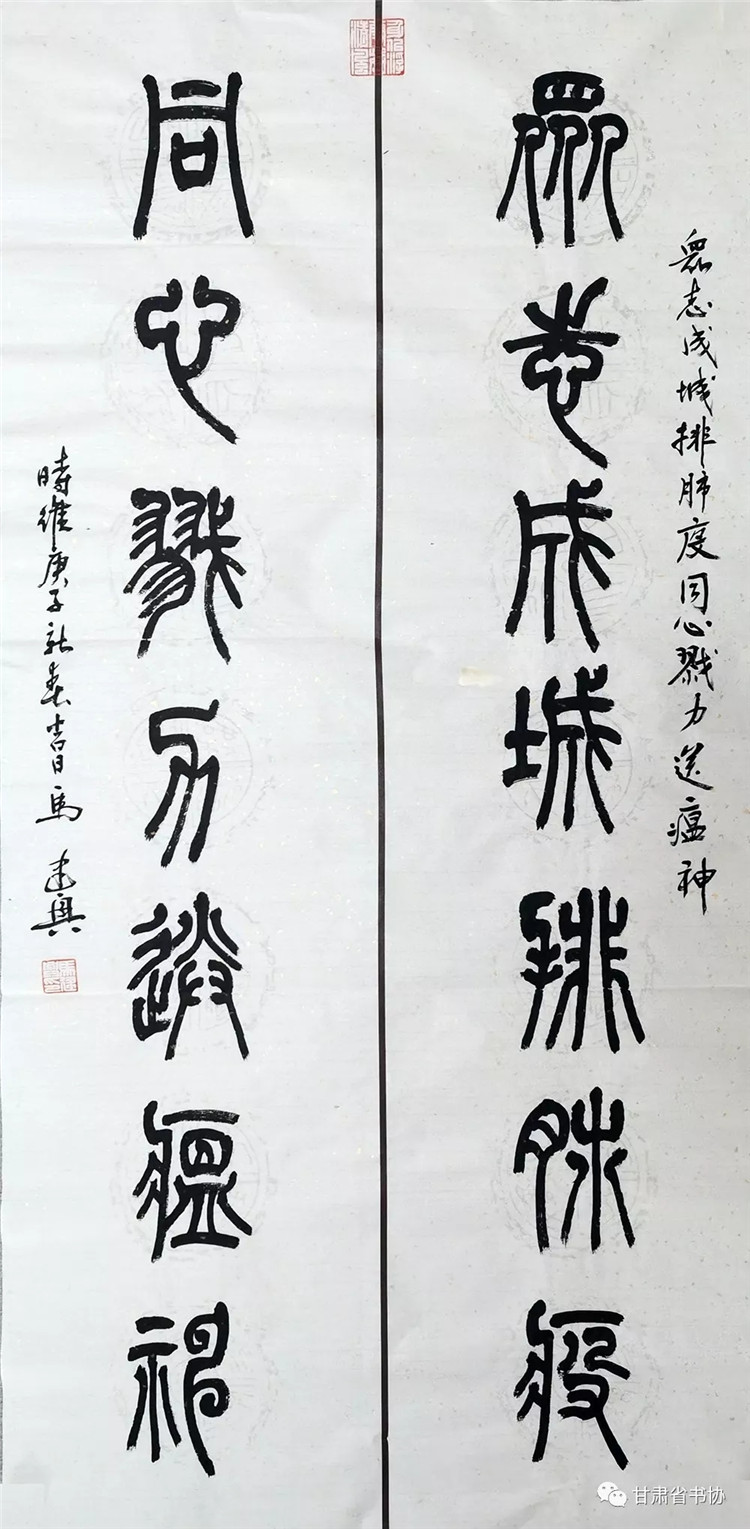 眾志成城排肺疫同心戮力送瘟神
眾志成城排肺疫
同心戮力送瘟神
時維庚子新春吉日馬建興
甘肃省书协